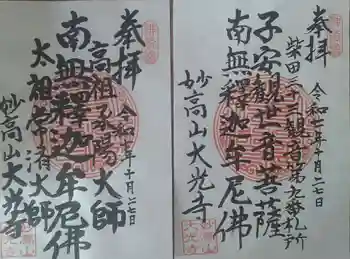 奉拝
柴田三十三観音第九番札所
令和七年十月二七日
子安観世音菩薩
南無釋迦牟尼佛
妙高山大光寺
奉拝
令和七年十月二七日
高祖承陽大師
南無釋迦牟尼佛
太祖常済大師
妙高山大光寺